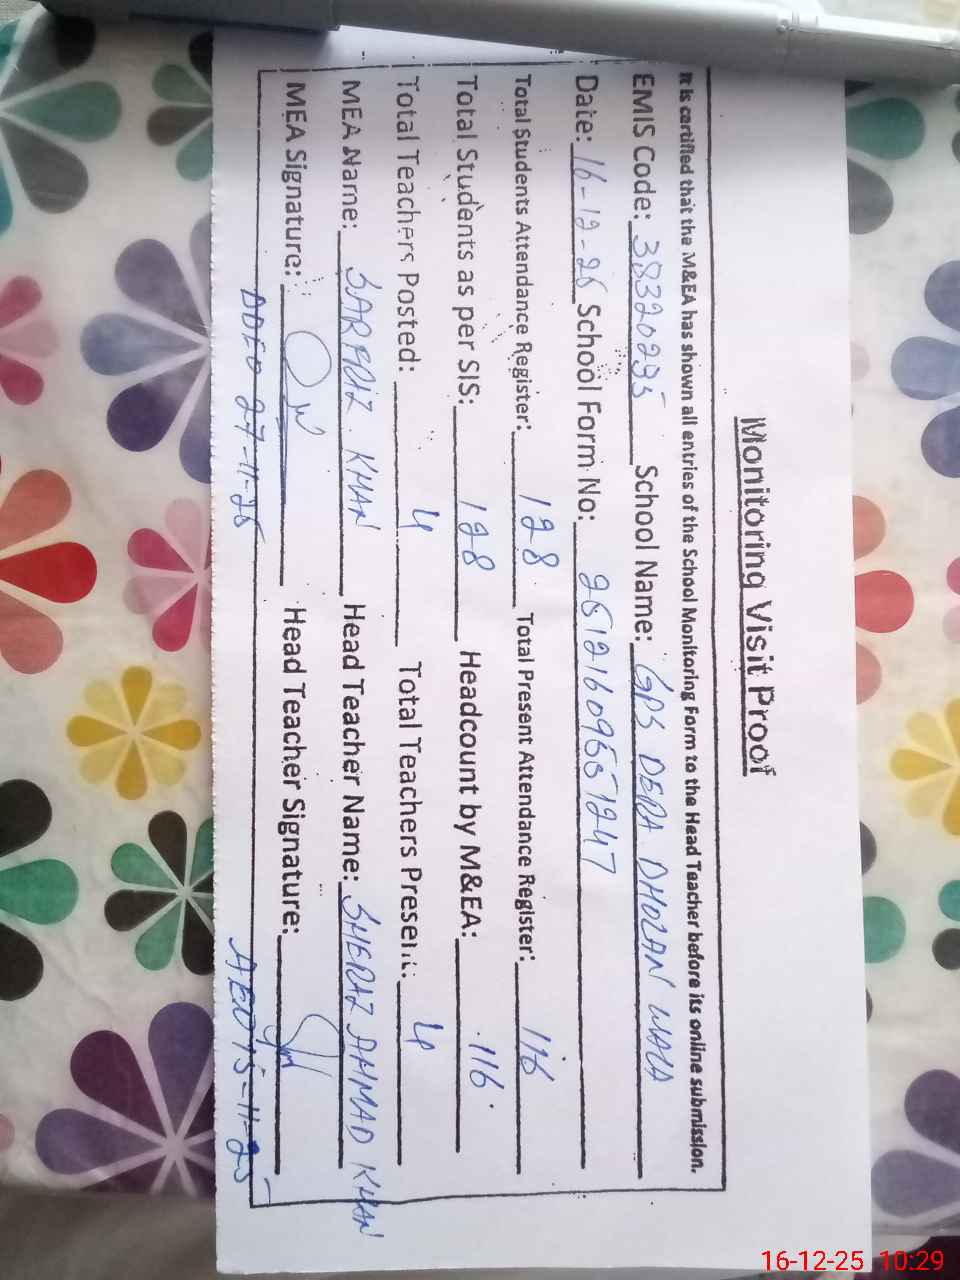 Monitoring Visit Proof
It is certified that the M&EA has shown all entries of the School Monitoring Form to the Head Teacher before its online submission.
EMIS Code: 38320295 School Name: GPS DERA DHOLAN WALA
Date: 16-12-25 School Form No: 25121609551247
Total Students Attendance Register: 128 Total Present Attendance Register: 116
Total Students as per SIS: 128 Headcount by M&EA: 116
Total Teachers Posted: 4 Total Teachers Present: 4
MEA Name: SARFRIZ KHAN Head Teacher Name: SHERAZ AHMAD KHAN
MEA Signature: Head Teacher Signature:
DDEO 27-11-25 AEO 15-11-25
16-12-25 10:29